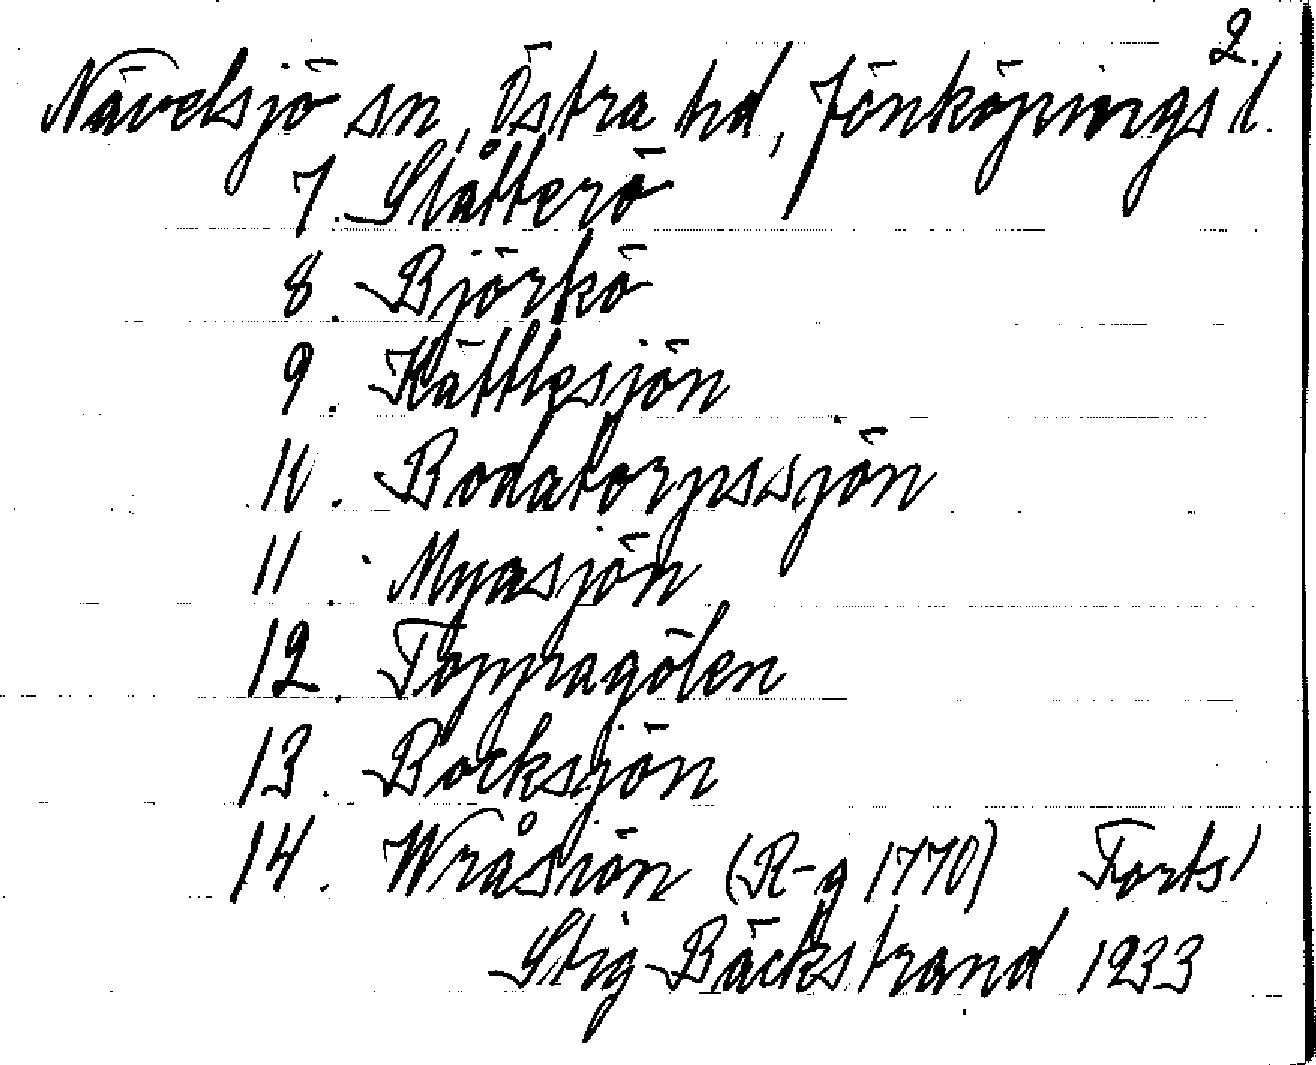 2.
Nävelsjö sn, Östra hd, Jönköpings l.
7. Slätterö
8. Björkö
9. Kättlesjön
10. Bodatorpssjön
11. Myasjön
12. Toppagölen
13. Bocksjön
14. Wråsiön (R-g 1770) Forts)
Stig Bäckstrand 1933